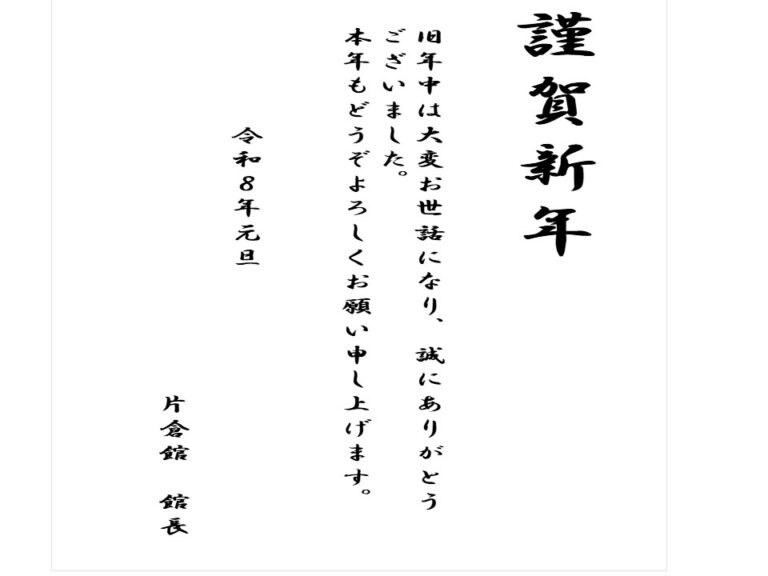 謹賀新年
旧年中は大変お世話になり、誠にありがとう
ございました。
本年もどうぞよろしくお願い申し上げます。
令和８年元旦
片倉館　館長